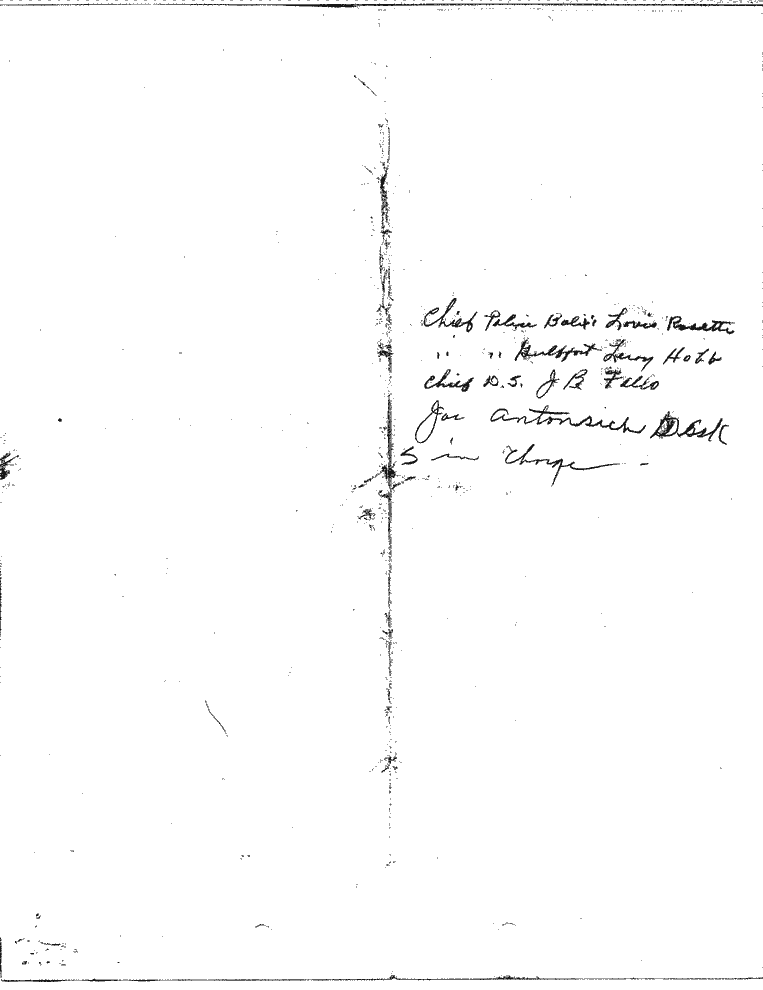 Chief Police Bolixi Louis Rosette
" " Gulfport Leroy Hobb
Chief D.S. J B Fallo
Joe Antonsich Desk
S in Charge -